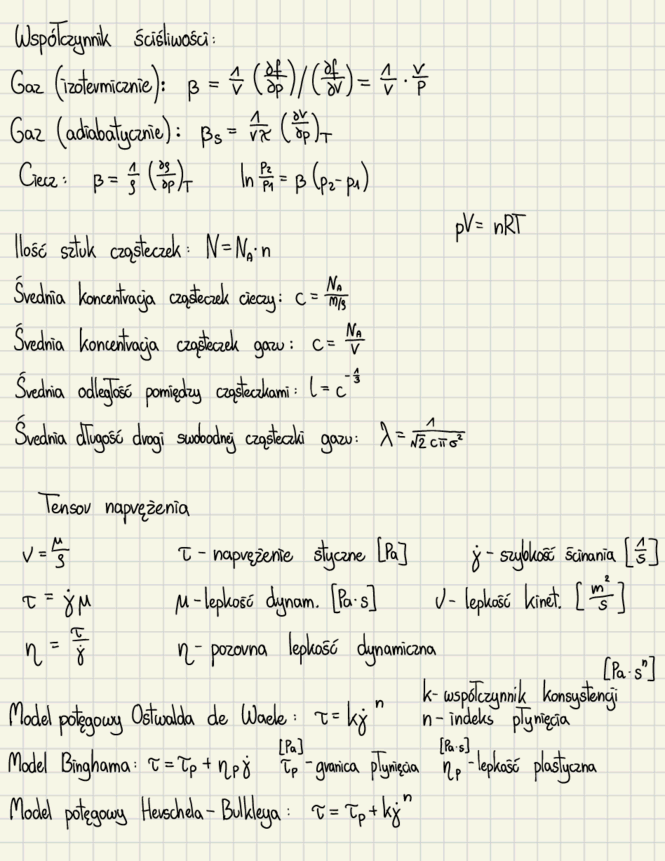 Współczynnik ściśliwości:
Gaz (izotermicznie): β = 1/V (∂f/∂p)/(∂f/∂V) = 1/V · V/P
Gaz (adiabatycznie): βs = 1/(Vϰ) (∂V/∂p)_T
Ciecz: β = 1/ρ (∂ρ/∂p)_T ln ρ₂/ρ₁ = β (p₂-p₁)
pV = nRT
Ilość sztuk cząsteczek: N = N_A·n
Średnia koncentracja cząsteczek cieczy: c = N_A/(M/ρ)
Średnia koncentracja cząsteczek gazu: c = N_A/V
Średnia odległość pomiędzy cząsteczkami: l = c^(-1/3)
Średnia długość drogi swobodnej cząsteczki gazu: λ = 1/(√2 cπσ²)
Tensor naprężenia
ν = μ/ρ τ - naprężenie styczne [Pa] γ̇ - szybkość ścinania [1/s]
τ = γ̇μ μ - lepkość dynam. [Pa·s] ν - lepkość kinet. [m²/s]
η = τ/γ̇ η - pozorna lepkość dynamiczna
[Pa·sⁿ]
k - współczynnik konsystencji
Model potęgowy Ostwalda de Waele: τ = kγ̇ⁿ n - indeks płynięcia
[Pa] [Pa·s]
Model Binghama: τ = τ_P + η_P γ̇ τ_P - granica płynięcia η_P - lepkość plastyczna
Model potęgowy Herschela - Bulkleya: τ = τ_P + kγ̇ⁿ